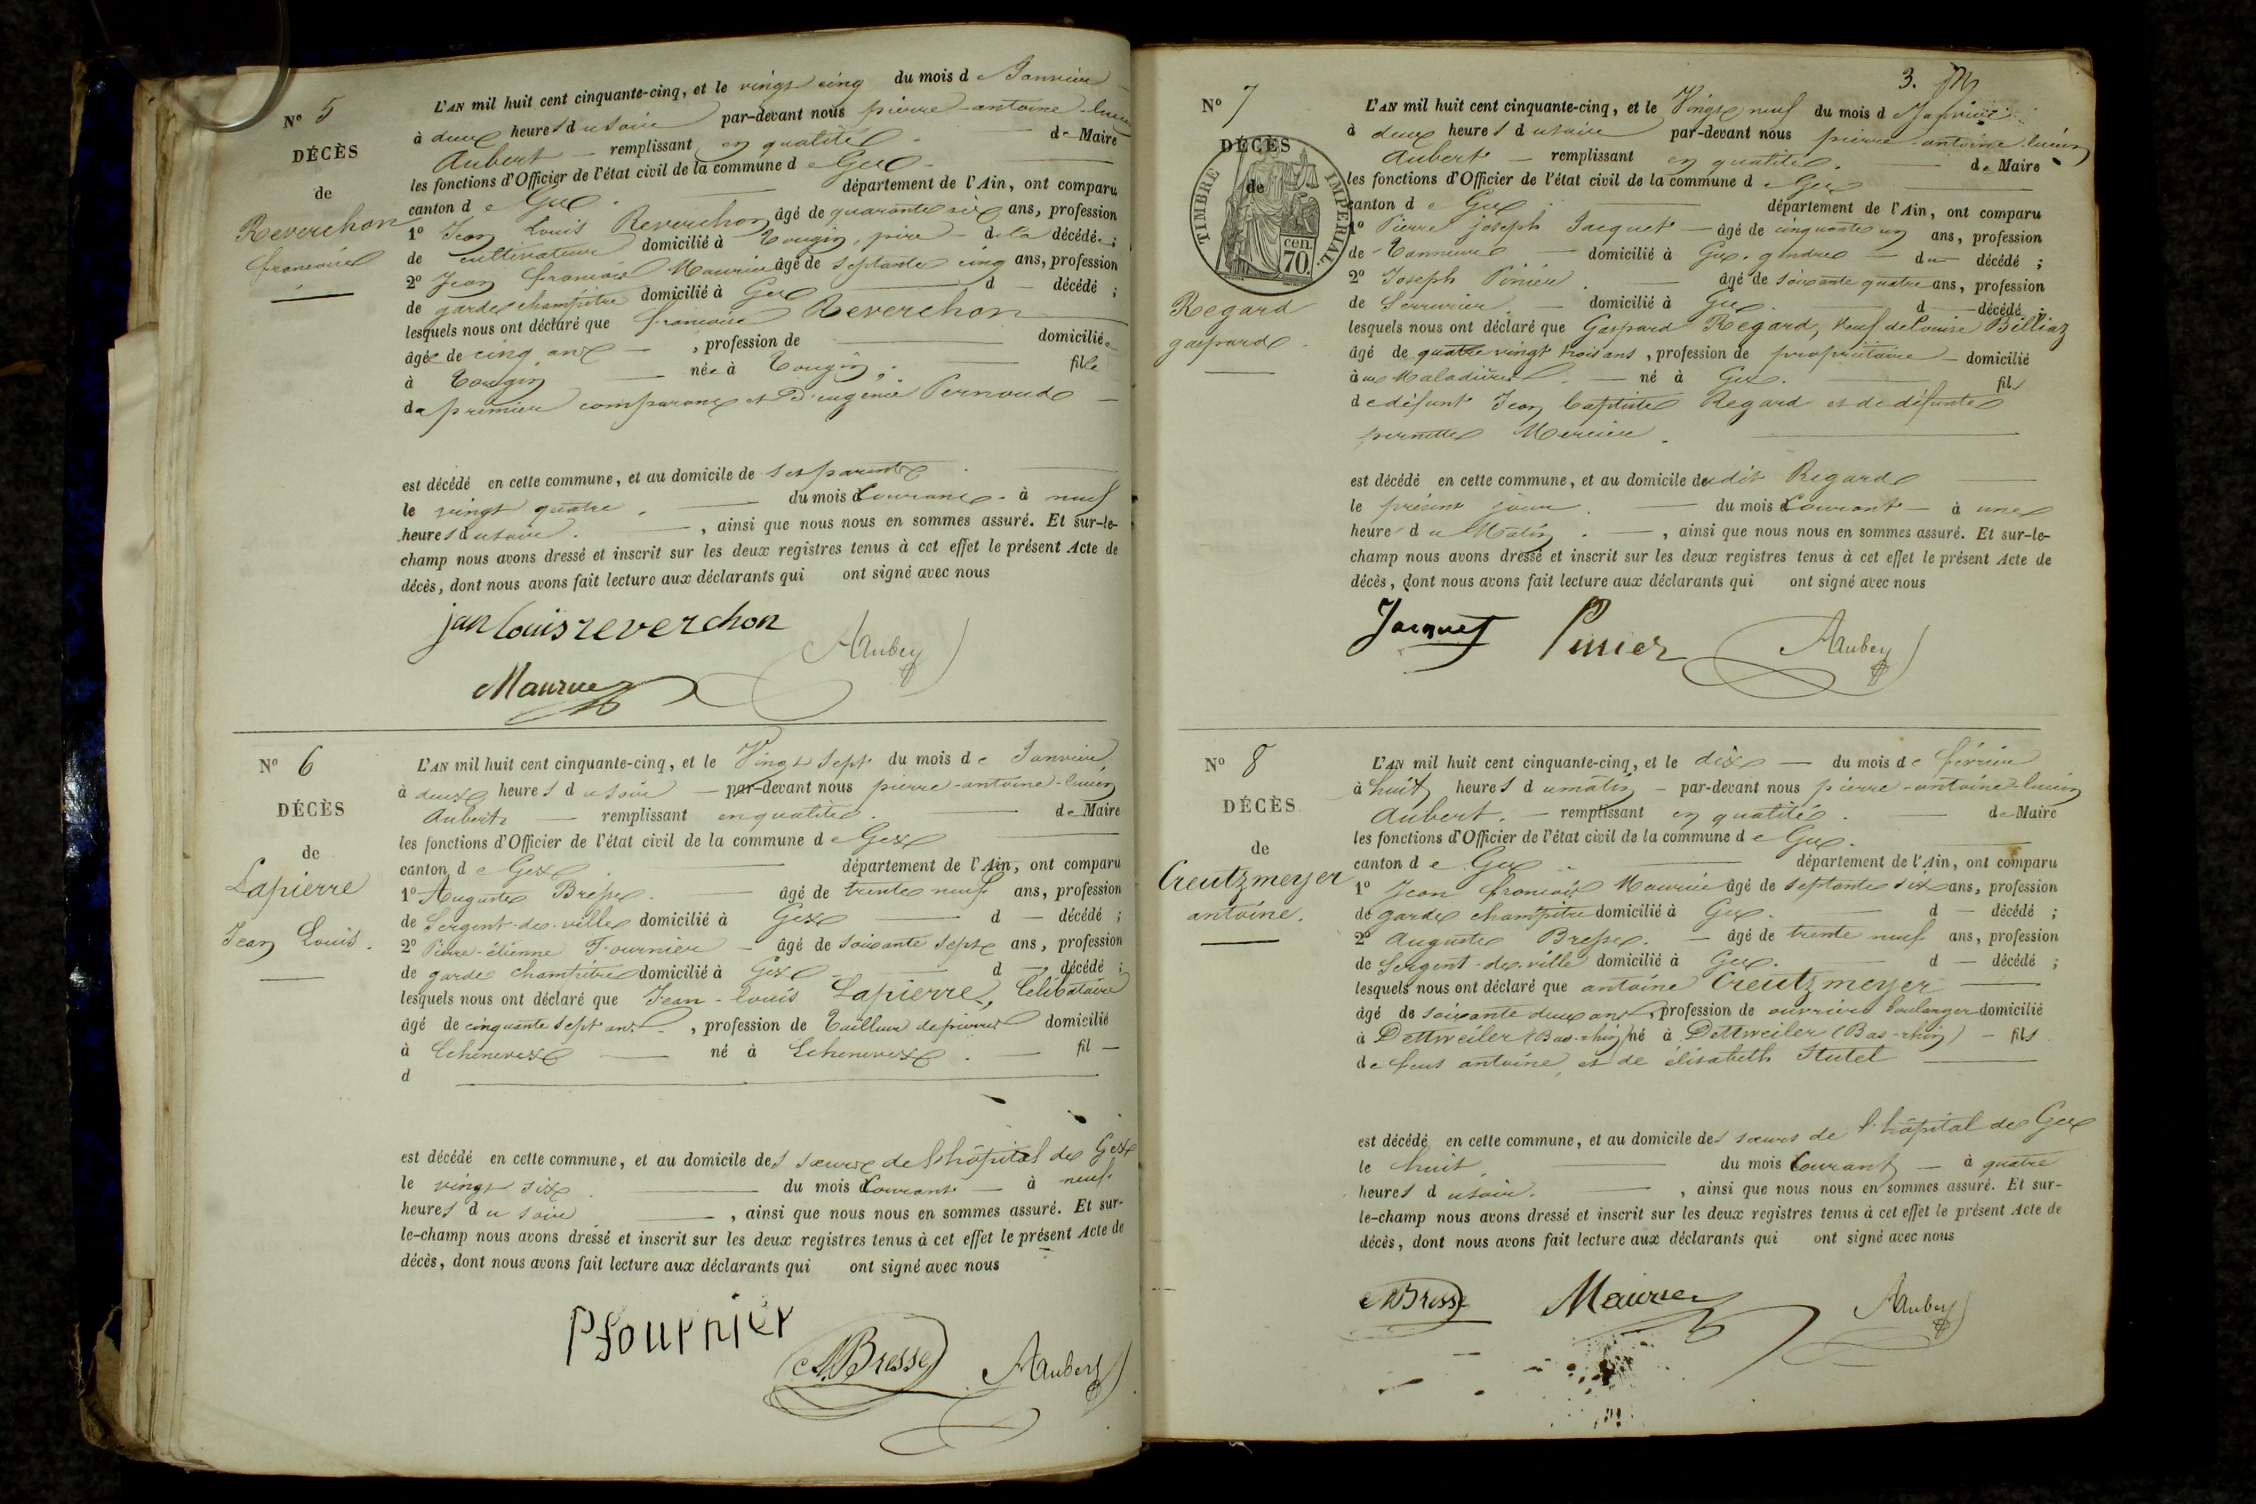 N° 5
DÉCÈS
de
Reverchon
francoise
L'AN mil huit cent cinquante-cinq, et le vingt cinq du mois de Janvier
à deux heures du soir par-devant nous pierre-antoine-lucien
Aubert — remplissant en qualité de Maire
les fonctions d'Officier de l'état civil de la commune de Gex
canton de Gex département de l'Ain, ont comparu
1° Jean Louis Reverchon âgé de quarante six ans, profession
de cultivateur domicilié à Tougin, père de la décédée ;
2° Jean francois Maurier âgé de septante cinq ans, profession
de garde champêtre domicilié à Gex d — décédé ;
lesquels nous ont déclaré que francoise Reverchon
âgée de cinq ans — , profession de — domiciliée
à Tougin — née à Tougin, fille
du premier comparant et d'eugénie Pernoud
est décédé en cette commune, et au domicile de ses parents
le vingt quatre du mois courant à neuf
heures du soir , ainsi que nous nous en sommes assuré. Et sur-le-
champ nous avons dressé et inscrit sur les deux registres tenus à cet effet le présent Acte de
décès, dont nous avons fait lecture aux déclarants qui ont signé avec nous
jan louis reverchon
AAubert
Maurier
N° 6
DÉCÈS
de
Lapierre
Jean Louis.
L'AN mil huit cent cinquante-cinq, et le Vingt Sept du mois de Janvier
à deux heures du soir — par-devant nous pierre-antoine-lucien
Aubert — remplissant en qualité de Maire
les fonctions d'Officier de l'état civil de la commune de Gex
canton de Gex département de l'Ain, ont comparu
1° Auguste Bresse âgé de trente neuf ans, profession
de Sergent-de-ville domicilié à Gex d — décédé ;
2° Pierre-étienne Fournier — âgé de soixante sept ans, profession
de garde champêtre domicilié à Gex d — décédé ;
lesquels nous ont déclaré que Jean-louis Lapierre, Célibataire
âgé de cinquante sept ans , profession de Tailleur de pierres domicilié
à Echenevex — né à Echenevex — fil —
d
est décédé en cette commune, et au domicile des sœurs de l'hôpital de Gex
le vingt six du mois courant — à neuf
heures du soir , ainsi que nous nous en sommes assuré. Et sur-
le-champ nous avons dressé et inscrit sur les deux registres tenus à cet effet le présent Acte de
décès, dont nous avons fait lecture aux déclarants qui ont signé avec nous
P fournier
ABresse AAubert
3.
N° 7
DÉCÈS
de
TIMBRE IMPERIAL.
70 cen.
Regard
gaspard
L'AN mil huit cent cinquante-cinq, et le Vingt neuf du mois de Janvier
à deux heures du soir par-devant nous pierre-antoine-lucien
Aubert — remplissant en qualité de Maire
les fonctions d'Officier de l'état civil de la commune de Gex
canton de Gex département de l'Ain, ont comparu
1° Pierre joseph Jacquet — âgé de cinquante un ans, profession
de Tanneur — domicilié à Gex, gendre — du décédé ;
2° Joseph Pinier âgé de soixante quatre ans, profession
de Serrurier — domicilié à Gex d — décédé ;
lesquels nous ont déclaré que Gaspard Regard, Veuf de Louise Billiaz
âgé de quatre vingt trois ans, profession de propriétaire — domicilié
aux Maladières — né à Gex. fils
de défunt Jean baptiste Regard et de défunte
pernette Mercier
est décédé en cette commune, et au domicile dudit Regard
le présent jour du mois courant — à une
heure du Matin , ainsi que nous nous en sommes assuré. Et sur-le-
champ nous avons dressé et inscrit sur les deux registres tenus à cet effet le présent Acte de
décès, dont nous avons fait lecture aux déclarants qui ont signé avec nous
Jacquet Pinier AAubert
N° 8
DÉCÈS
de
Creutzmeyer
antoine.
L'AN mil huit cent cinquante-cinq, et le dix — du mois de février
à huit heures du matin — par-devant nous pierre-antoine-lucien
Aubert. — remplissant en qualité de Maire
les fonctions d'Officier de l'état civil de la commune de Gex.
canton de Gex département de l'Ain, ont comparu
1° Jean francois Maurier âgé de septante six ans, profession
de garde champêtre domicilié à Gex. d — décédé ;
2° Auguste Bresse. — âgé de trente neuf ans, profession
de Sergent-de-ville domicilié à Gex. d — décédé ;
lesquels nous ont déclaré que antoine Creutzmeyer
âgé de soixante deux ans, profession de ouvrier boulanger domicilié
à Dettweiler (Bas-rhin) né à Dettweiler (Bas-rhin) — fils
de feus antoine, et de élisabeth Stutel
est décédé en cette commune, et au domicile des sœurs de l'hôpital de Gex
le huit du mois courant — à quatre
heures du soir. , ainsi que nous nous en sommes assuré. Et sur-
le-champ nous avons dressé et inscrit sur les deux registres tenus à cet effet le présent Acte de
décès, dont nous avons fait lecture aux déclarants qui ont signé avec nous
ABresse Maurier AAubert